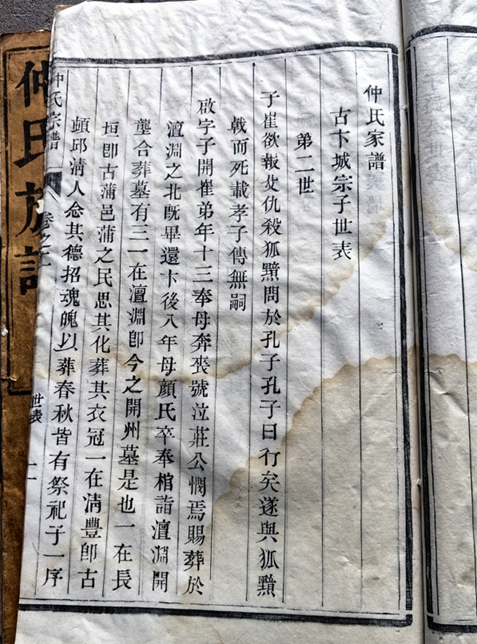 仲氏家譜
古卞城宗子世表
第二世
子崔欲報父仇殺狐黶問於孔子孔子曰行矣遂與狐黶
戰而死載孝子傳無嗣
啟字子開崔弟年十三奉母奔喪號泣莊公憫焉賜葬於
澶淵之北既畢還卞後八年母顏氏卒奉棺詣澶淵開
壟合葬墓有三一在澶淵卽今之開州墓是也一在長
垣卽古蒲邑蒲之民思其化葬其衣冠一在清豐卽古
頓邱清人念其德招魂魄以葬春秋皆有祭祀子一序
仲氏宗譜
卷之一
世表
仲氏族譜